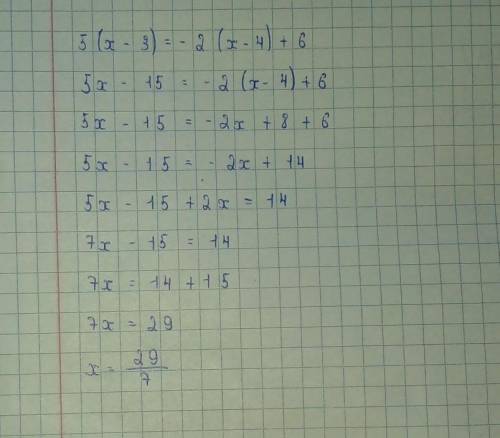 5(x - 3) = - 2 (x - 4) + 6
5x - 15 = - 2(x - 4) + 6
5x - 15 = - 2x + 8 + 6
5x - 15 = - 2x + 14
5x - 15 + 2x = 14
7x - 15 = 14
7x = 14 + 15
7x = 29
x = 29/7